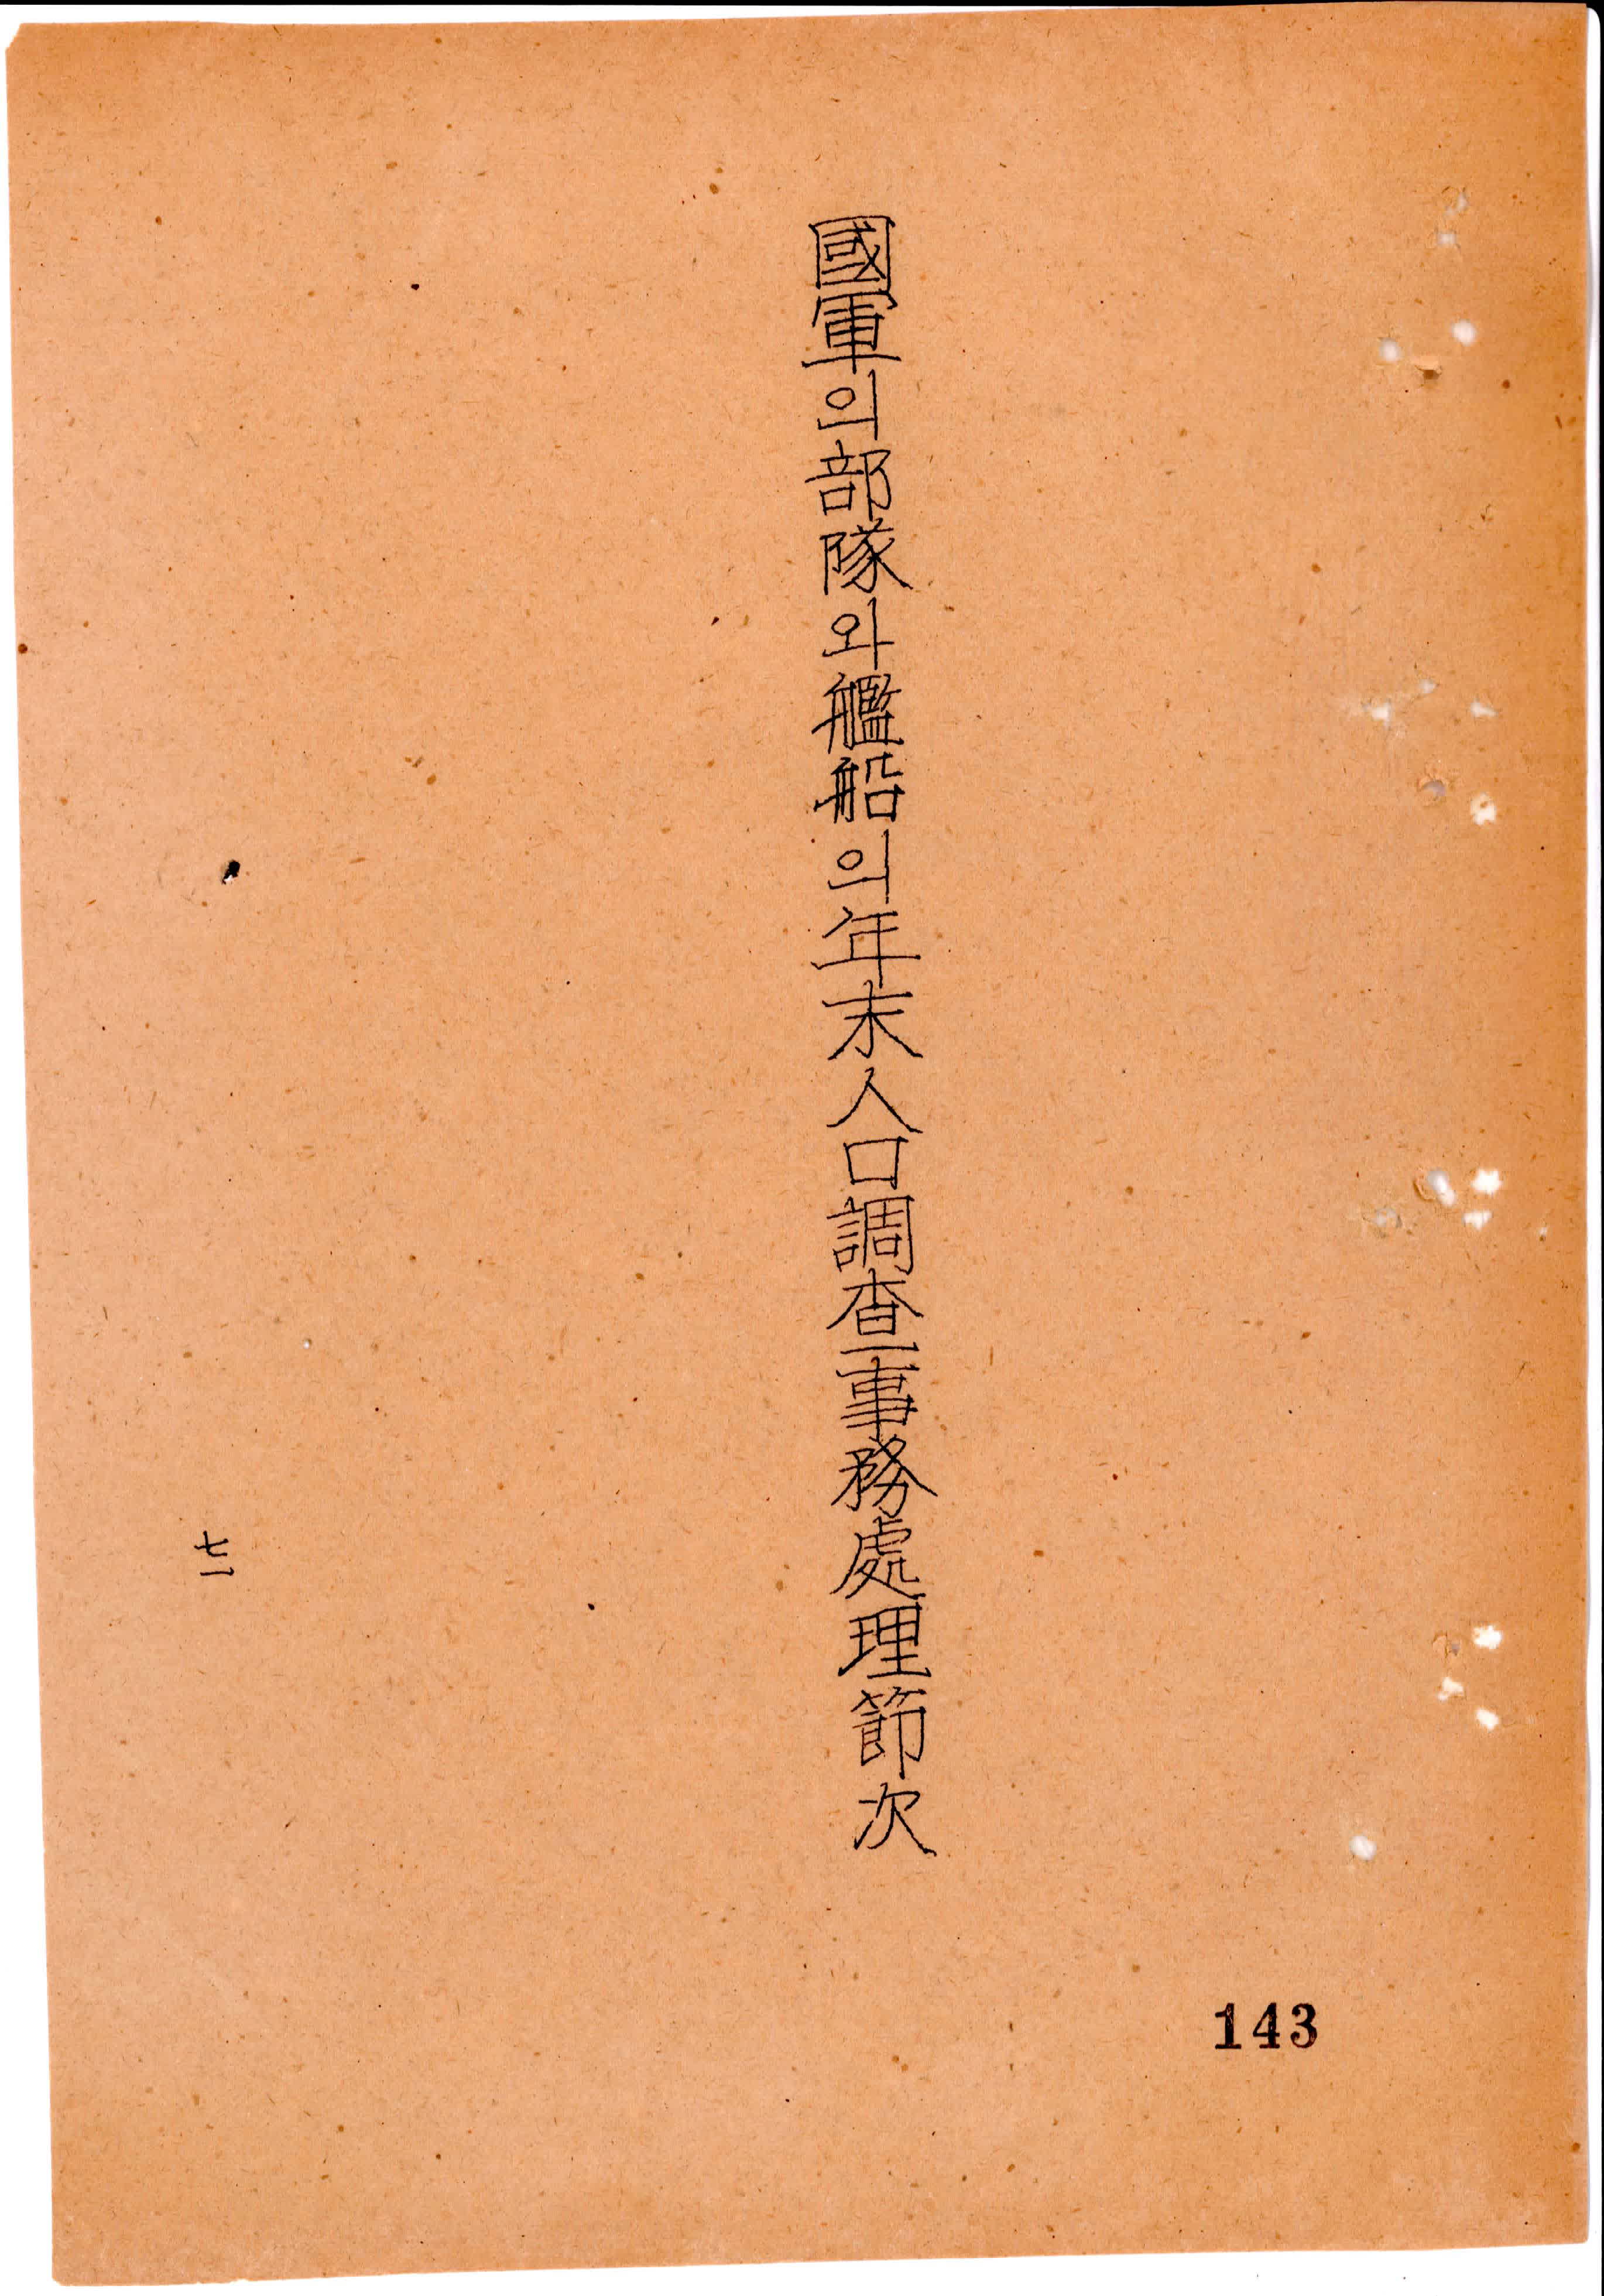 國軍의部隊와艦船의年末人口調査事務處理節次
七一
143